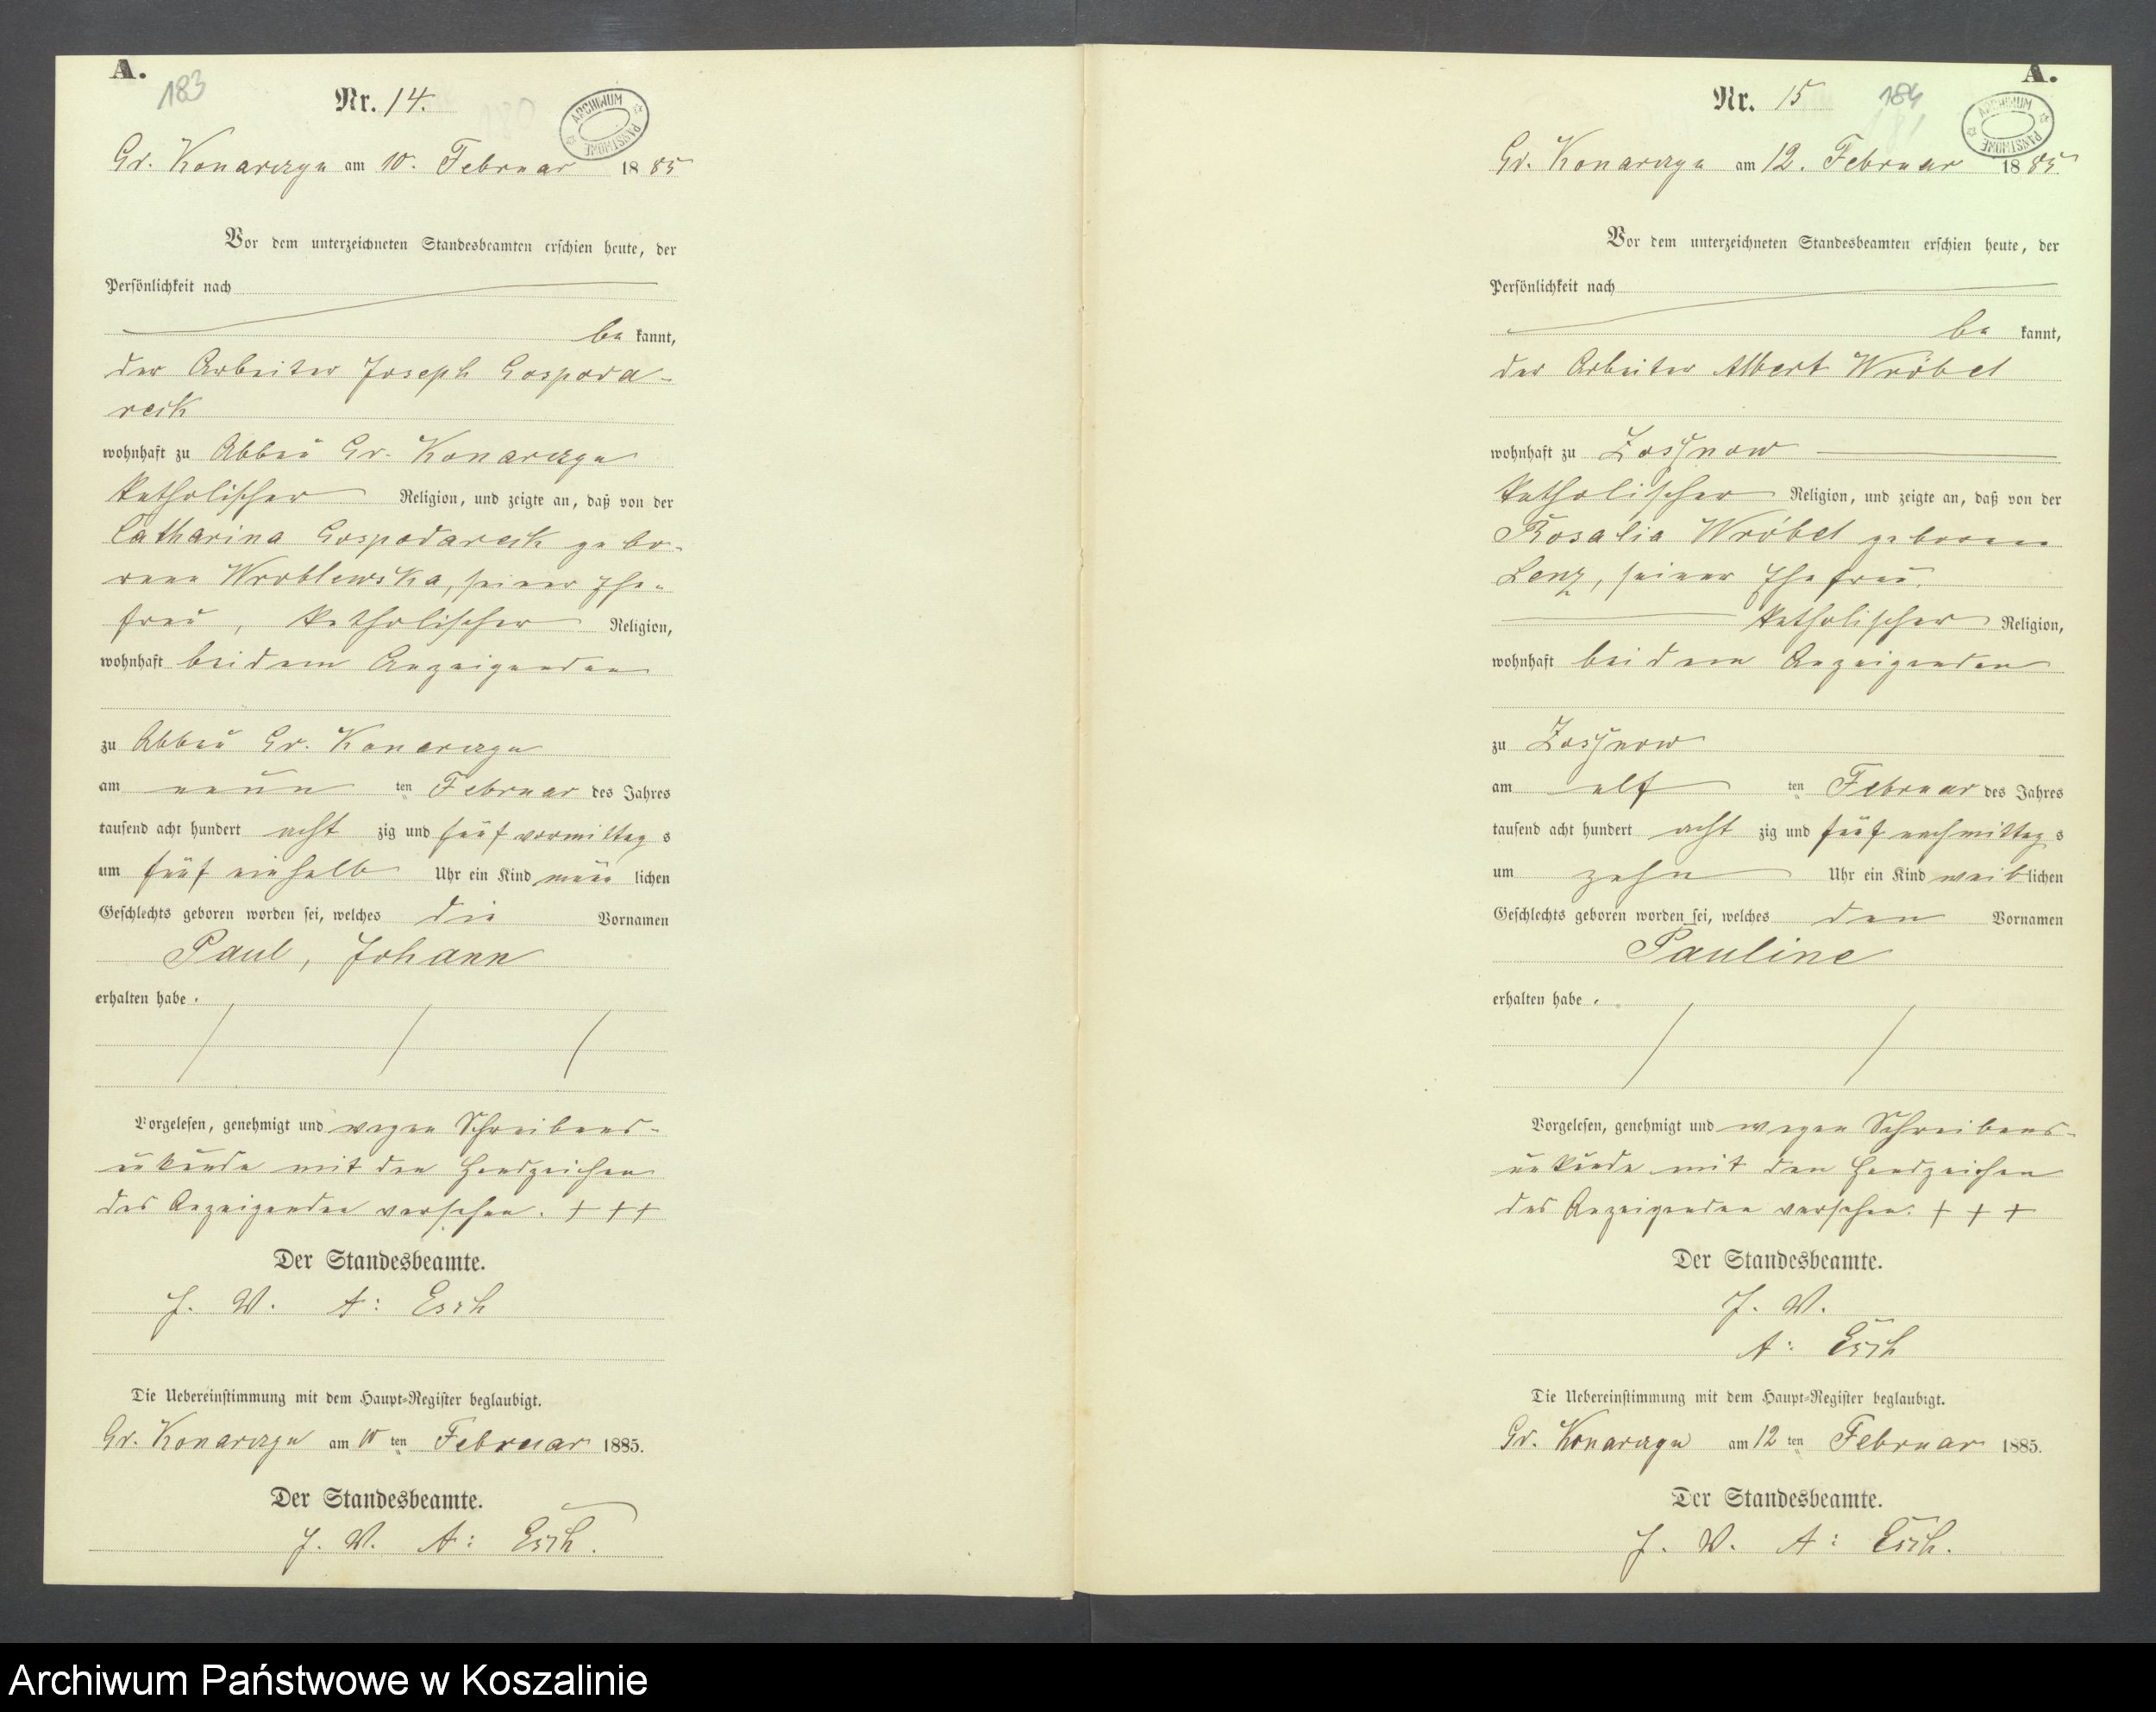 A.
183
Nr. 14.
ARCHIWUM PAŃSTWOWE
Gr. Konarczyn am 10. Februar 1885
Vor dem unterzeichneten Standesbeamten erschien heute, der
Persönlichkeit nach
be kannt,
der Arbeiter Joseph Gospoda-
reck
wohnhaft zu Abbau Gr. Konarczyn
katholischer Religion, und zeigte an, daß von der
Catharina Gospodareck gebo-
rene Wroblewska, seiner Ehe-
frau, katholischer Religion,
wohnhaft bei dem Anzeigenden
zu Abbau Gr. Konarczyn
am neun ten Februar des Jahres
tausend acht hundert acht zig und fünf vormittag s
um fünf einhalb Uhr ein Kind männ lichen
Geschlechts geboren worden sei, welches die Vornamen
Paul, Johann
erhalten habe.
Vorgelesen, genehmigt und wegen Schreibens-
unkunde mit den Handzeichen
des Anzeigenden versehen. + + +
Der Standesbeamte.
J. V. A: Esch
Die Uebereinstimmung mit dem Haupt-Register beglaubigt.
Gr. Konarczyn am 10 ten Februar 1885.
Der Standesbeamte.
J. V. A: Esch.
A.
Nr. 15
184
181
ARCHIWUM PAŃSTWOWE
Gr. Konarczyn am 12. Februar 1885.
Vor dem unterzeichneten Standesbeamten erschien heute, der
Persönlichkeit nach
be kannt,
der Arbeiter Albert Wróbel
wohnhaft zu Zossnow
katholischer Religion, und zeigte an, daß von der
Rosalia Wróbel geborene
Lenz, seiner Ehefrau,
katholischer Religion,
wohnhaft bei dem Anzeigenden
zu Zossnow
am elf ten Februar des Jahres
tausend acht hundert acht zig und fünf nachmittag s
um zehn Uhr ein Kind weib lichen
Geschlechts geboren worden sei, welches den Vornamen
Pauline
erhalten habe.
Vorgelesen, genehmigt und wegen Schreibens-
unkunde mit den Handzeichen
des Anzeigenden versehen. + + +
Der Standesbeamte.
J. V.
A: Esch
Die Uebereinstimmung mit dem Haupt-Register beglaubigt.
Gr. Konarczyn am 12 ten Februar 1885.
Der Standesbeamte.
J. V. A: Esch.
Archiwum Państwowe w Koszalinie